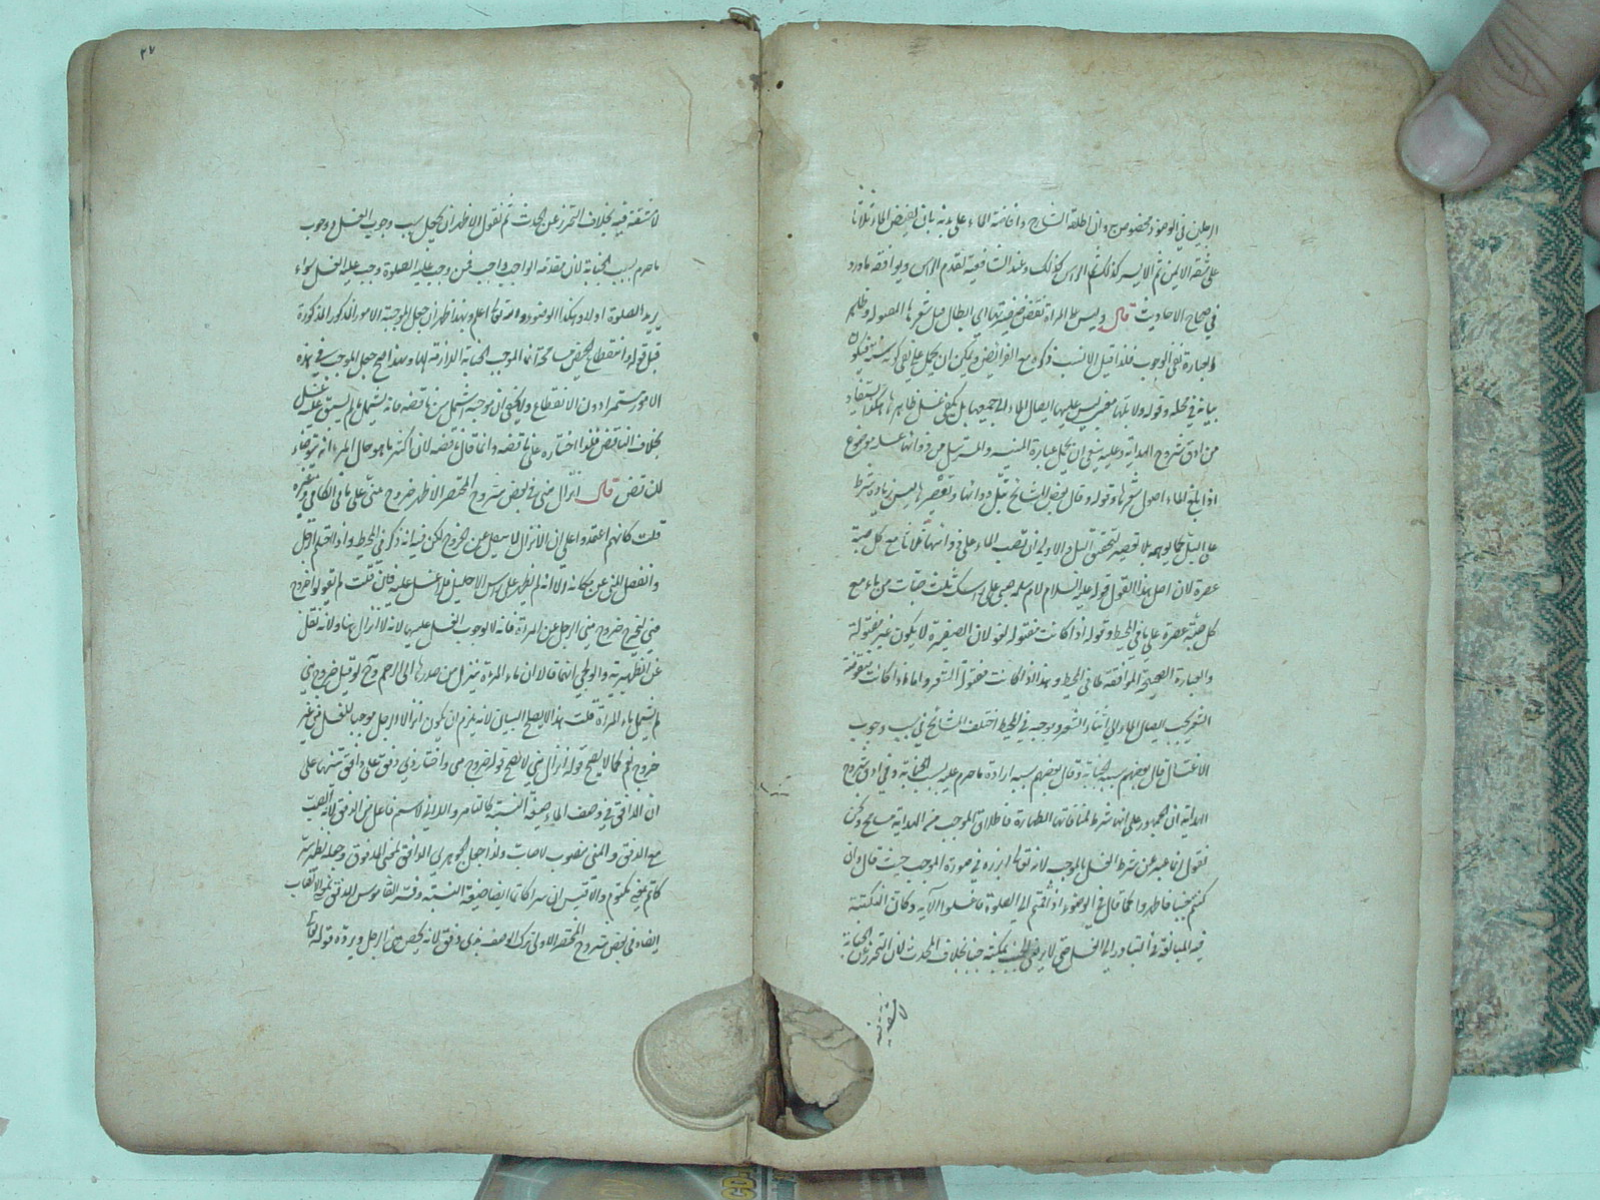 الرجلين في الوضوء مخصوص به وان اطلقه الشارح وافاضة الماء على بدنه بان يفيض الماء ثلاثا
على شقه الايمن ثم الايسر كذلك ثم الرأس كذلك وعند الشافعية يقدم الرأس ويوافقه ما ورد
في صحاح الاحاديث قال وليس على المرأة نقض ضفيرتها اى ابطال فتل شعرها
والعبارة نفي الوجوب فلذا قيل الانسب ذكره مع الفرائض ويمكن ان يحمل على نفي كونه سنة
بيانه في محله وقوله ولا بلها معنى ليس عليها ايصال الماء الى جميعها بل يكفي غسل ظاهرها هكذا يستفاد
من ادق شروح الهداية وعليه ينبغي ان يحمل عبارة المنية والمسترسل من ذوائبها غسله موضوع
اذا بلغ الماء اصول شعرها وقوله وقال بعض المشايخ تبل ذوائبها وتعصرها ليس زيادة شرط
على البل كما يوهمه بل العصر لتحقق البل والاولى ان تصب الماء على ذوائبها ثلاثا مع كل صبة
عصرة لان اصل هذا القول قوله عليه السلام لام سلمة صبي على رأسك ثلث حثيات من ماء مع
كل حثية عصرة على ما في المحيط وقوله اذا كانت مفتولة لغو لان الضفيرة لا يكون غير مفتولة
والعبارة الصحيحة الموافقة لما في المحيط وهذا اذا كانت مفتولة الشعر واما اذا كانت منقوضة
الشعر يجب ايصال الماء الى اثناء الشعر وبوجبه في المحيط اختلف المشايخ في سبب وجوب
الاغتسال قال بعضهم سببه الجنابة وقال بعضهم سببه ارادة ما حرم عليه بسبب الجنابة وفي ادق شروح
الهداية ان الجمهور على انها شرط لمنافاتها الطهارة فاطلاق الموجب من الهداية مسامح ونحن
نقول انما عبر عن شرط الغسل بالموجب لانه تعالى ابرزه في صورة الموجب حيث قال وان
كنتم جنبا فاطهروا كما قال في الوضوء اذا قمتم الى الصلوة فاغسلوا الآية وكان النكتة
فيه المبالغة في التبادر الى الغسل حتى لا يرضى الجنب بمكثه جنبا بخلاف المحدث لان التحرز عن الجنابة
لا مشقة فيه
٢٧
لا مشقة فيه بخلاف التحرز عن الحدث ثم نقول الاظهر ان يجعل سبب وجوب الغسل وجوب
ما حرم بسبب الجنابة لان مقدمة الواجب واجب فمن وجب عليه الصلوة وجب عليه الغسل سواء
يريد الصلوة اولا وهكذا الوضوء والله تعالى اعلم وبهذا ظهر ان جعل الموجبة الامور المذكورة
قبل قوله وانقطاع الحيض مسامحة انما الموجب الجنابة اللازمة لها وبهذا صح جعل الموجب في هذه
الامور مستمرا دون الانقطاع ولا يخفى ان موجبه اشمل من ناقضه فانه يشمل ما لم يسبق عليه غسل
بخلاف الناقض فلذا اختاره على ناقضه وانما قال ناقضه لان اكثر ما هو حال المرء انه يتوضأ
للناقض قال انزال مني في بعض شروح المختصر الاظهر خروج مني على ما في الكافي وغيره
قلت كانهم اعتقدوا على ان الانزال لا ينبئ عن الخروج لكن فيه انه ذكر في المحيط واذا احتلم الرجل
وانفصل المني عن مكانه الا انه لم يظهر على رأس الاحليل فلا غسل عليه فان قلت لم لم يقولوا خروج
مني ليخرج خروج مني الرجل عن المرأة فانه لا يوجب الغسل عليها لانه لا انزال هنا ولانه نقل
عن الظهيرية والولوالجي انهما قالا ان ماء المرأة ينزل من صدرها الى الرحم وح لو قيل خروج مني
لم يشمل ماء المرأة قلت هذا لا يصلح البيان لانه يلزم ان يكون انزال الرجل موجبا للغسل من غير
خروج نعم كما لا يصح قوله انزال مني لا يصح قوله خروج مني واختار ذي دفق على دافق تنبيها على
ان الدافق في وصف الماء صيغة النسبة كالتامر واللابن لا اسم فاعل من الدفق لانه الصب
مع الدفق والمني مصبوب لا صاب ولذا جعل الجوهري الدافق بمعنى المدفوق وجعله نظير سر
كاتم بمعنى مكتوم والاقيس ان سرا كاتما ايضا صيغة النسبة وفسر القاموس الدفق بمعنى الانصباب
ايضا وفي بعض شروح المختصر الاولى ترك الوصف بذي دفق لانه يخص مني الرجل ويرده قوله تعالى